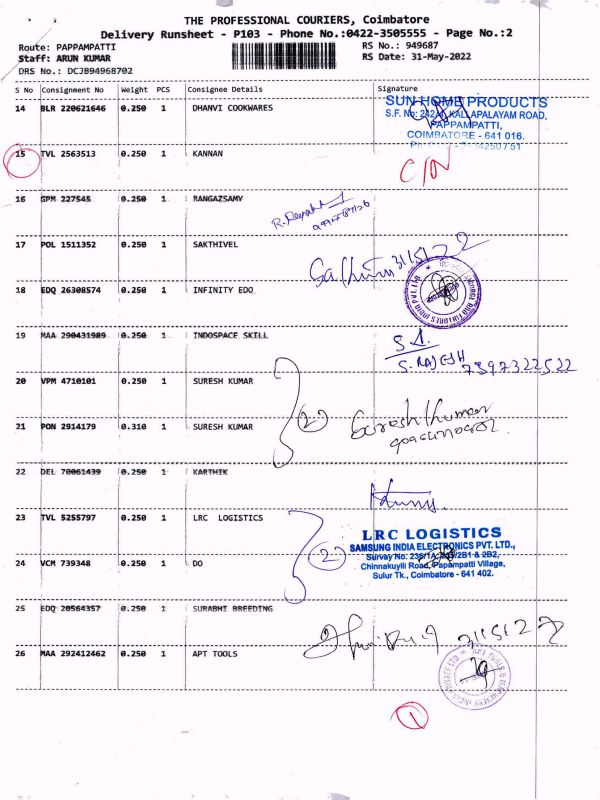 THE PROFESSIONAL COURIERS, Coimbatore
Delivery Runsheet - P103 - Phone No.:0422-3505555 - Page No.:2
Route: PAPPAMPATTI RS No.: 949687
Staff: ARUN KUMAR RS Date: 31-May-2022
DRS No.: DCJB94968702
S No Consignment No Weight PCS Consignee Details Signature
14 BLR 220621646 0.250 1 DHANVI COOKWARES
SUN HOME PRODUCTS
KALLAPALAYAM ROAD,
PAPPAMPATTI,
COIMBATORE - 641 016.
15 TVL 2563513 0.250 1 KANNAN
C/N
16 GPM 227545 0.250 1 RANGAZSAMY
17 POL 1511352 0.250 1 SAKTHIVEL
31/5/22
18 EDQ 26308574 0.250 1 INFINITY EDO
19 MAA 290431989 0.250 1 INDOSPACE SKILL
S. RAJESH 7397322522
20 VPM 4710101 0.250 1 SURESH KUMAR
2
21 PON 2914179 0.310 1 SURESH KUMAR
Suresh Kumar
22 DEL 70061439 0.250 1 KARTHIK
23 TVL 5255797 0.250 1 LRC LOGISTICS
LRC LOGISTICS
SAMSUNG INDIA ELECTRONICS PVT. LTD.,
2
Survay No: 2B1 & 2B2,
24 VCM 739348 0.250 1 DO
Chinnakuyili Road, Papampatti Village,
Sulur Tk., Coimbatore - 641 402.
25 EDQ 20564357 0.250 1 SURABHI BREEDING
31/5/22
26 MAA 292412462 0.250 1 APT TOOLS
1